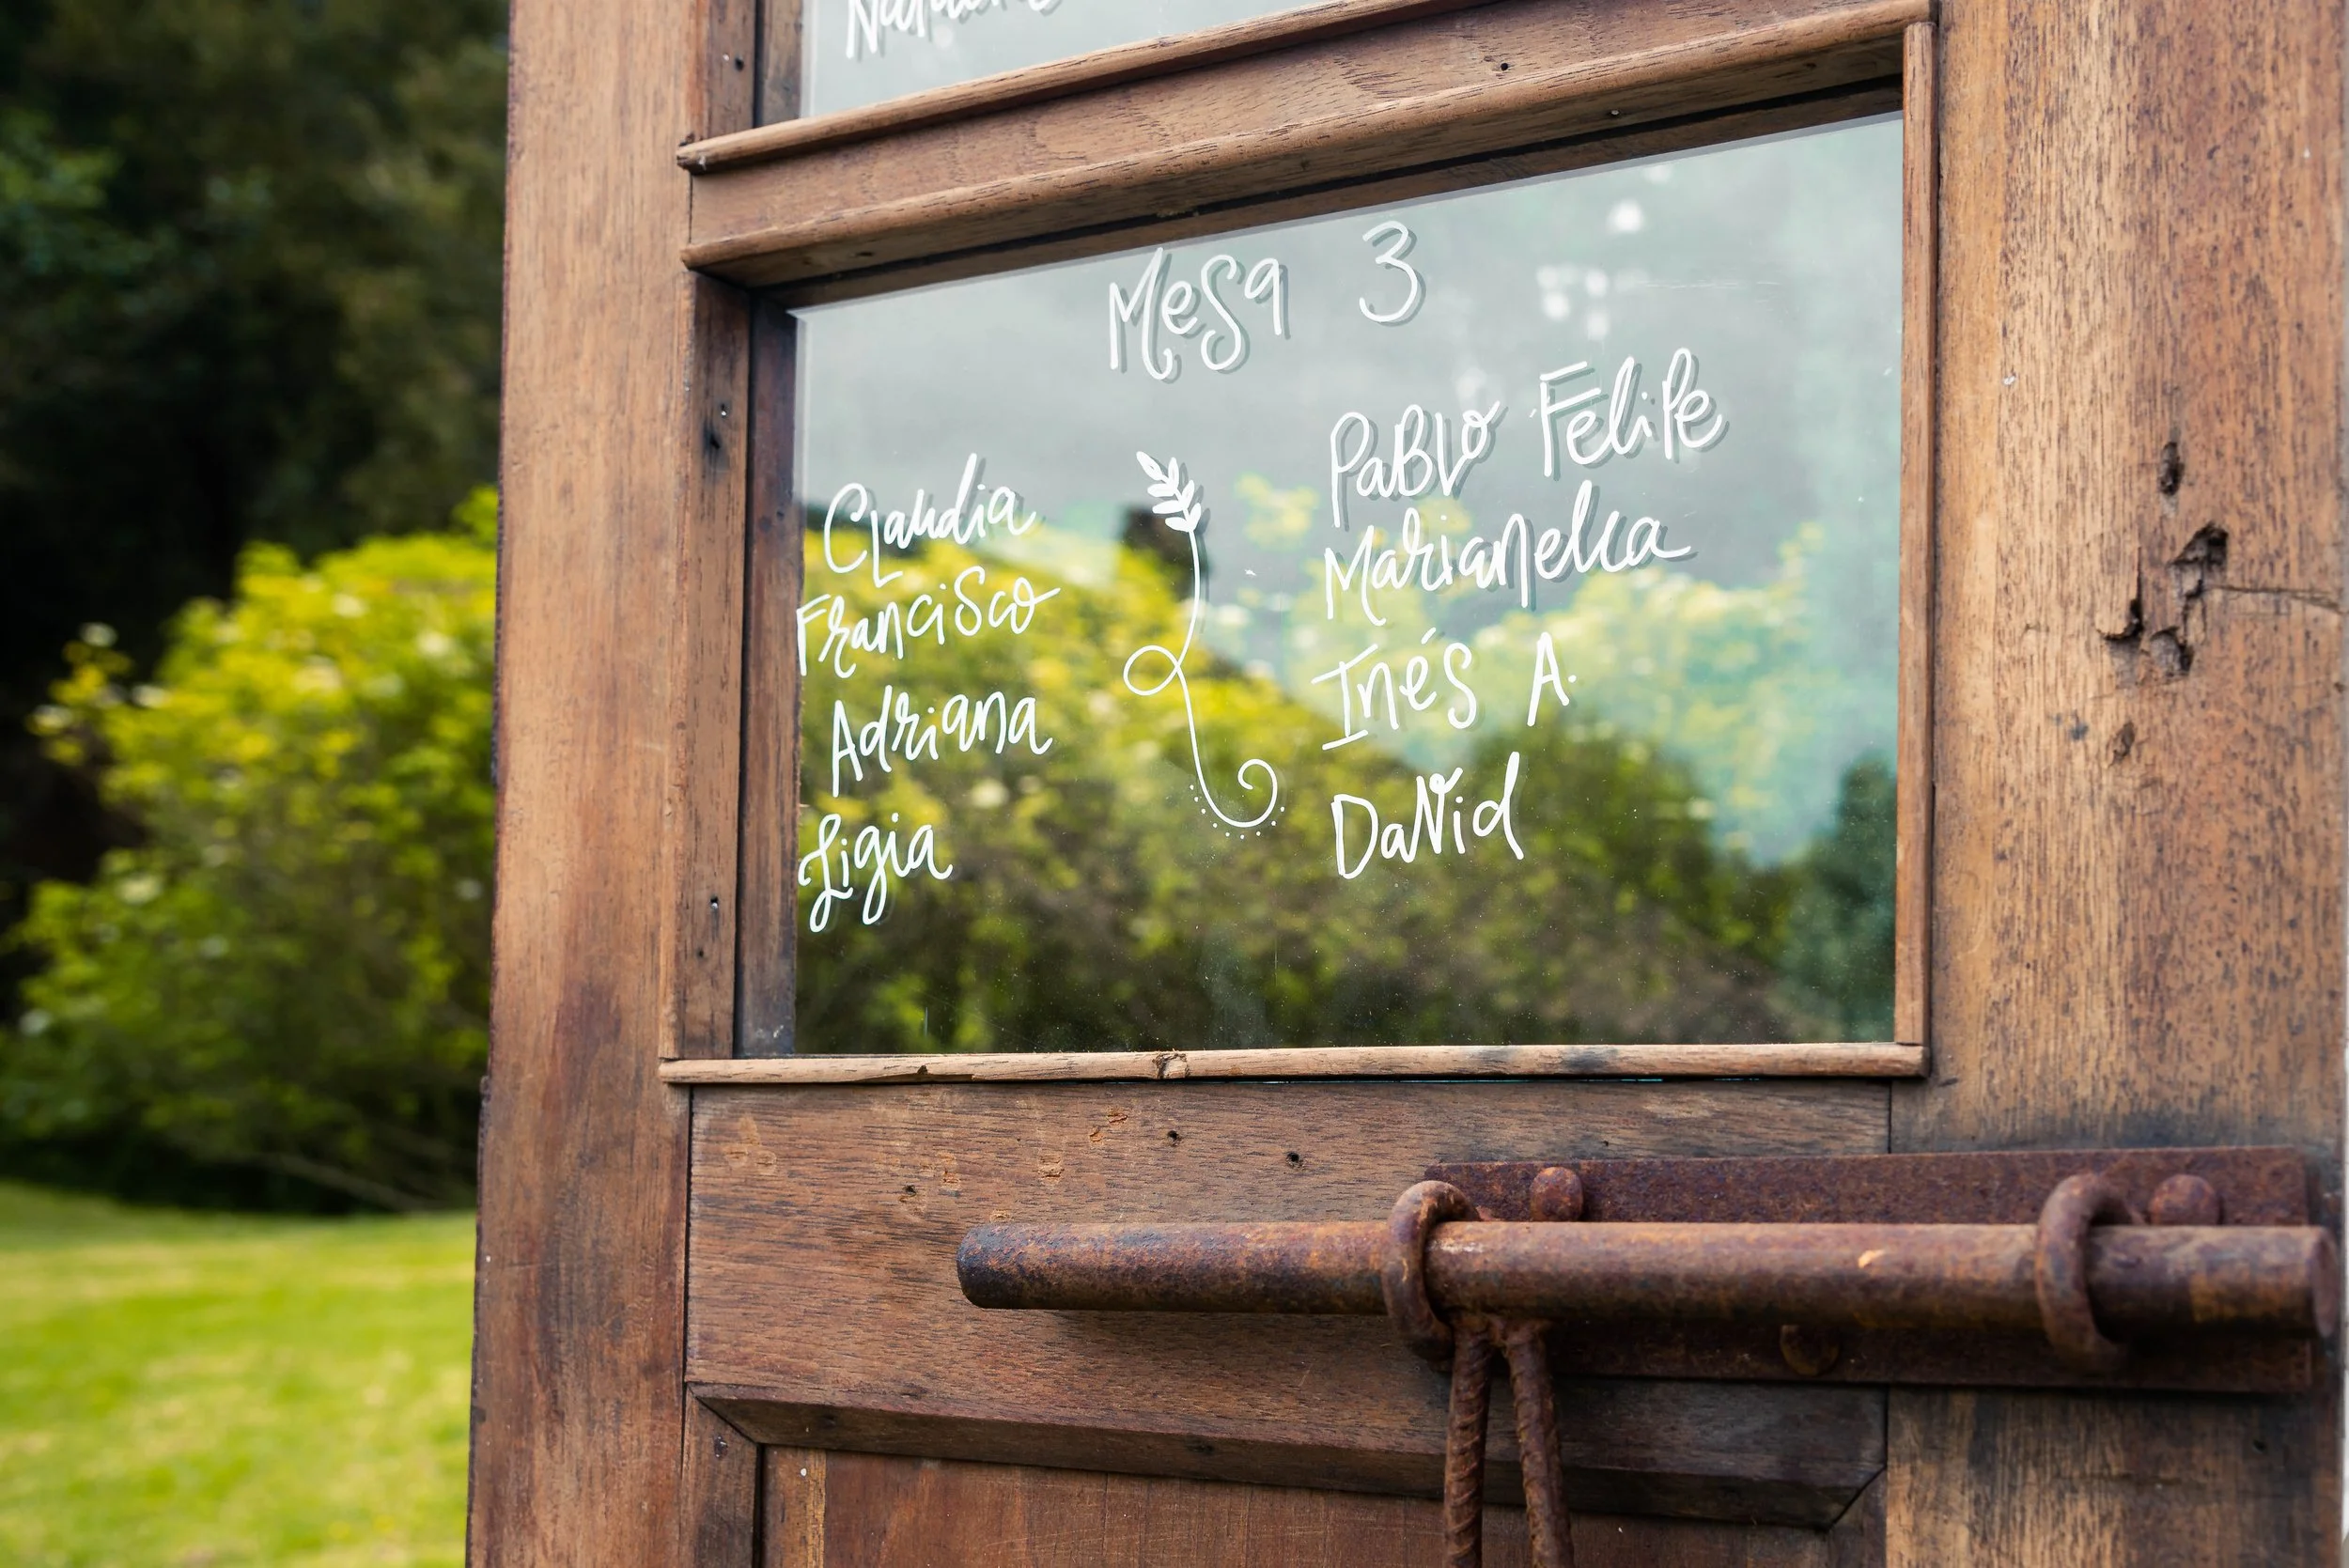 Mesa 3
Claudia
Francisco
Adriana
Ligia
Pablo Felipe
Marianella
Inés A.
David